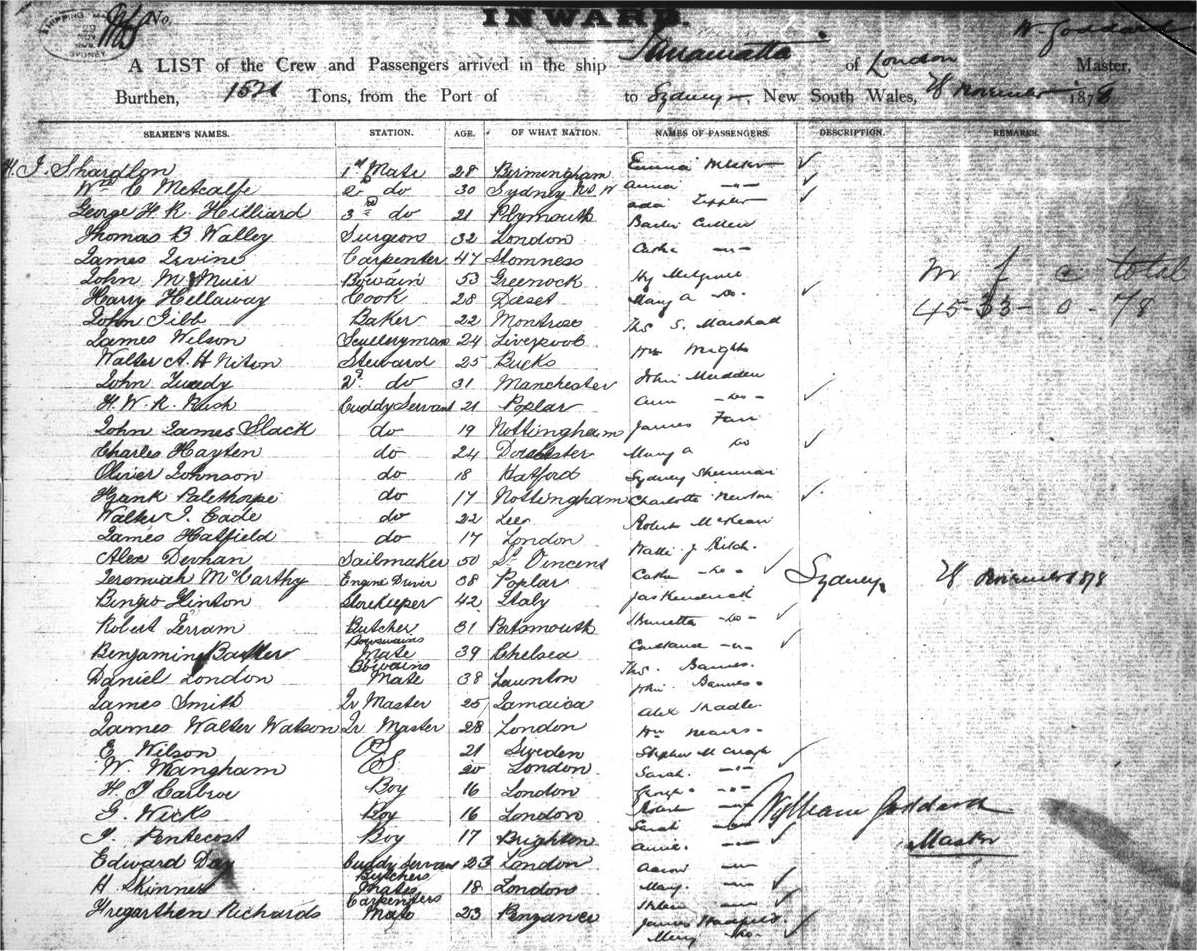 SHIPPING MASTER
SYDNEY
No.
INWARD.
W. Goddard
A LIST of the Crew and Passengers arrived in the ship Parramatta of London Master,
Burthen, 1521 Tons, from the Port of to Sydney, New South Wales, 28 November 1878
SEAMEN'S NAMES. STATION. AGE. OF WHAT NATION. NAMES OF PASSENGERS. DESCRIPTION. REMARKS.
H. J. Shardlon 1st Mate 28 Birmingham Emma
Wm C Metcalfe 2d do 30 Sydney NSW Anna -"-
George H. R. Hilliard 3rd do 21 Plymouth Ada
Thomas B Walley Surgeon 32 London Cullen
James Irvine Carpenter 47 Stomness Cathe -"-
John M Muir Bowain 53 Greenock Hy
Harry Hellaway Cook 28 Dorset Mary A Do.
John Gibb Baker 22 Montrose Thos S. Marshall
James Wilson Sculleryman 24 Liverpool Wm Wright
Walter A. H Niton Steward 25 Bucks John Madden
John Tweedy 2d do 31 Manchester Ann -Do-
H. W. R. Rush Cuddy Servant 21 Poplar James Farr
John James Slack do 19 Nottingham Mary A Do
Charles Hayten do 24 Dorchester Sydney
Oliver Johnson do 18 Hatford Charlotte Newton
Frank Palethorpe do 17 Nottingham Robert McKean
Walter J. Cade do 22 Lee
James Hatfield do 17 London Cathe -Do-
Alex Devhan Sailmaker 50 St Vincens Jas Kendrick
Jeromiah McCarthy Engine Driver 38 Poplar Henrietta -Do-
Bingo Ginton Storekeeper 42 Italy Constance -"-
Robert Jerram Butcher 31 Potsmouth Thos. Barnes.
Benjamin Baxter Bowswains Mate 39 Chelsea John Barnes.
Daniel London Bowains Mate 38 Launton Alex
James Smith Qr Master 25 Jamaica Wm
James Walter Watson Qr. Master 28 London Stephen
E. Wilson OS 21 Sweden Sarah. -"-
W. Mangham OS. 20 London George -"-
H. J Carbroe Boy 16 London Robert -"-
G. Wicks Boy 16 London Sarah -"-
J. Pentecost Boy 17 Brighton Annie. -"-
Edward Day Cuddy Servant 23 London Aaron -"-
H Skinner Butchers Mates 18 London Mary. -"-
Tregarthen Richards Carpenters Mate 23 Penzance Helen -"-
James Hadfield.
Mary -Do-
m f c total
45-33-0-78
Sydney, 28 November 1878
William Goddard
Master